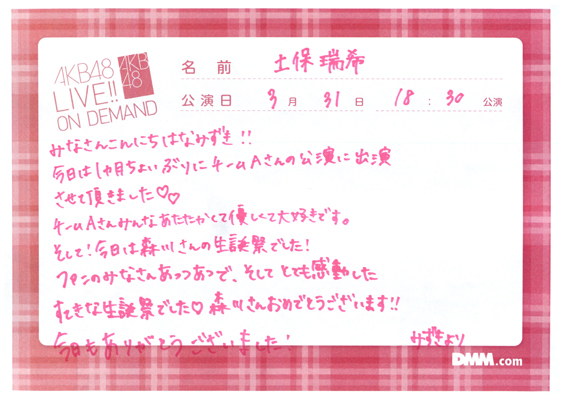 AKB48
LIVE!!
ON DEMAND
AKB
48
名前 土保瑞希
公演日 3月31日 18:30公演
みなさんこんにちはなみずき!!
今日は1ヶ月ちょいぶりにチームAさんの公演に出演
させて頂きました♡♡
チームAさんみんなあたたかくて優しくて大好きです。
そして!今日は森川さんの生誕祭でした!
ファンのみなさんあっつあつで、そしてとても感動した
すてきな生誕祭でした♡森川さんおめでとうございます!!
今日もありがとうございました!
みずきより
DMM.com